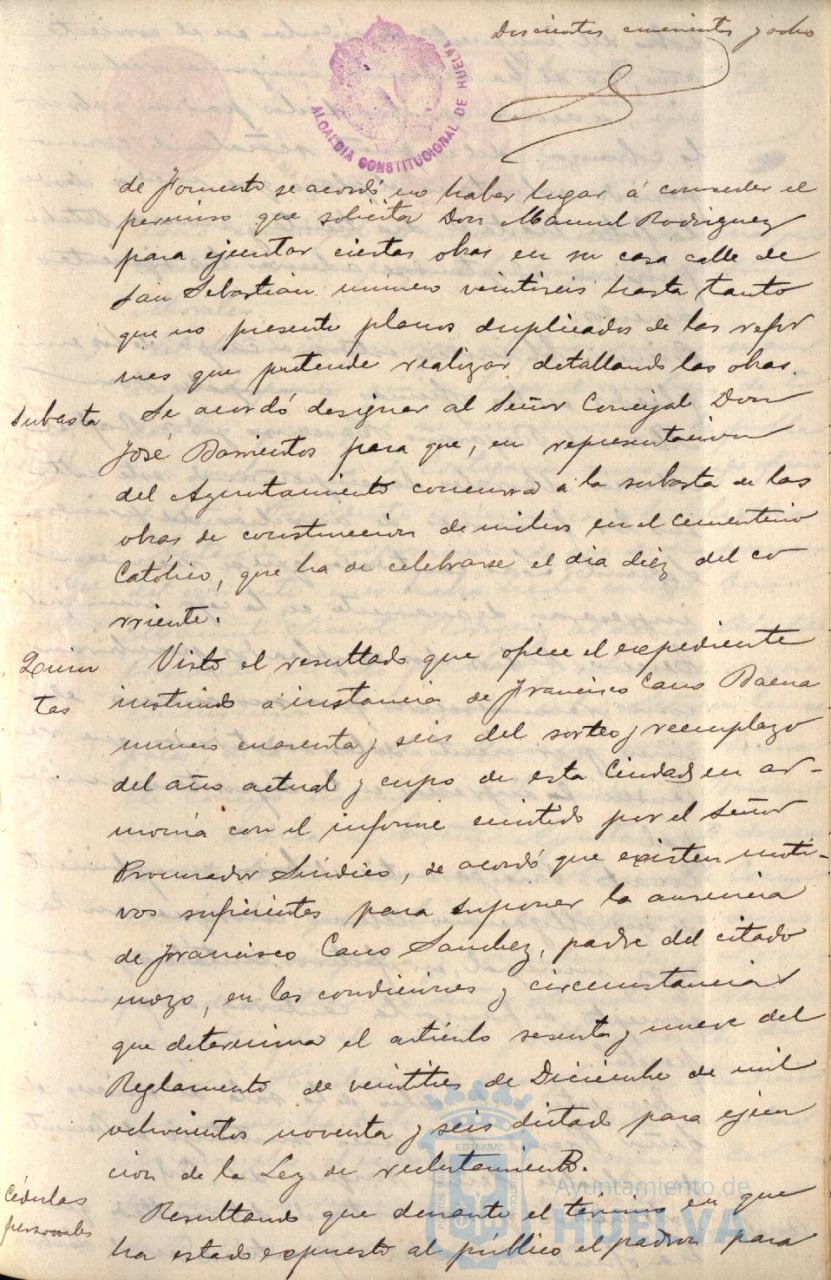 Doscientos cincuenta y ocho
ALCALDÍA CONSTITUCIONAL DE HUELVA
de Fomento se acordó no haber lugar á conceder el
permiso que solicita Don Manuel Rodriguez
para ejecutar ciertas obras en su casa calle de
San Sebastian numero veintiseis hasta tanto
que no presente planos duplicados de las refor
mas que pretende realizar detallando las obras.
Subasta Se acordó designar al Señor Concejal Don
José Barrientos para que, en representacion
del Ayuntamiento concurra á la subasta de las
obras de construccion de nichos en el Cementerio
Católico, que ha de celebrarse el dia diez del co
rriente.
Quin Visto el resultado que ofrece el expediente
tas instruido á instancia de Francisco Cano Baena
número cuarenta y seis del sorteo y reemplazo
del año actual y cupo de esta Ciudad en ar-
monía con el informe emitido por el Señor
Procurador Síndico, se acordó que existen moti-
vos suficientes para suponer la ausencia
de Francisco Cano Sanchez, padre del citado
mozo, en las condiciones y circunstancias
que determina el artículo sesenta y nueve del
Reglamento de veintitres de Diciembre de mil
ochocientos noventa y seis dictado para ejecu
cion de la Ley de reclutamiento.
Cédulas Resultando que durante el término en que
personales ha estado expuesto al público el padron para
Ayuntamiento de
HUELVA